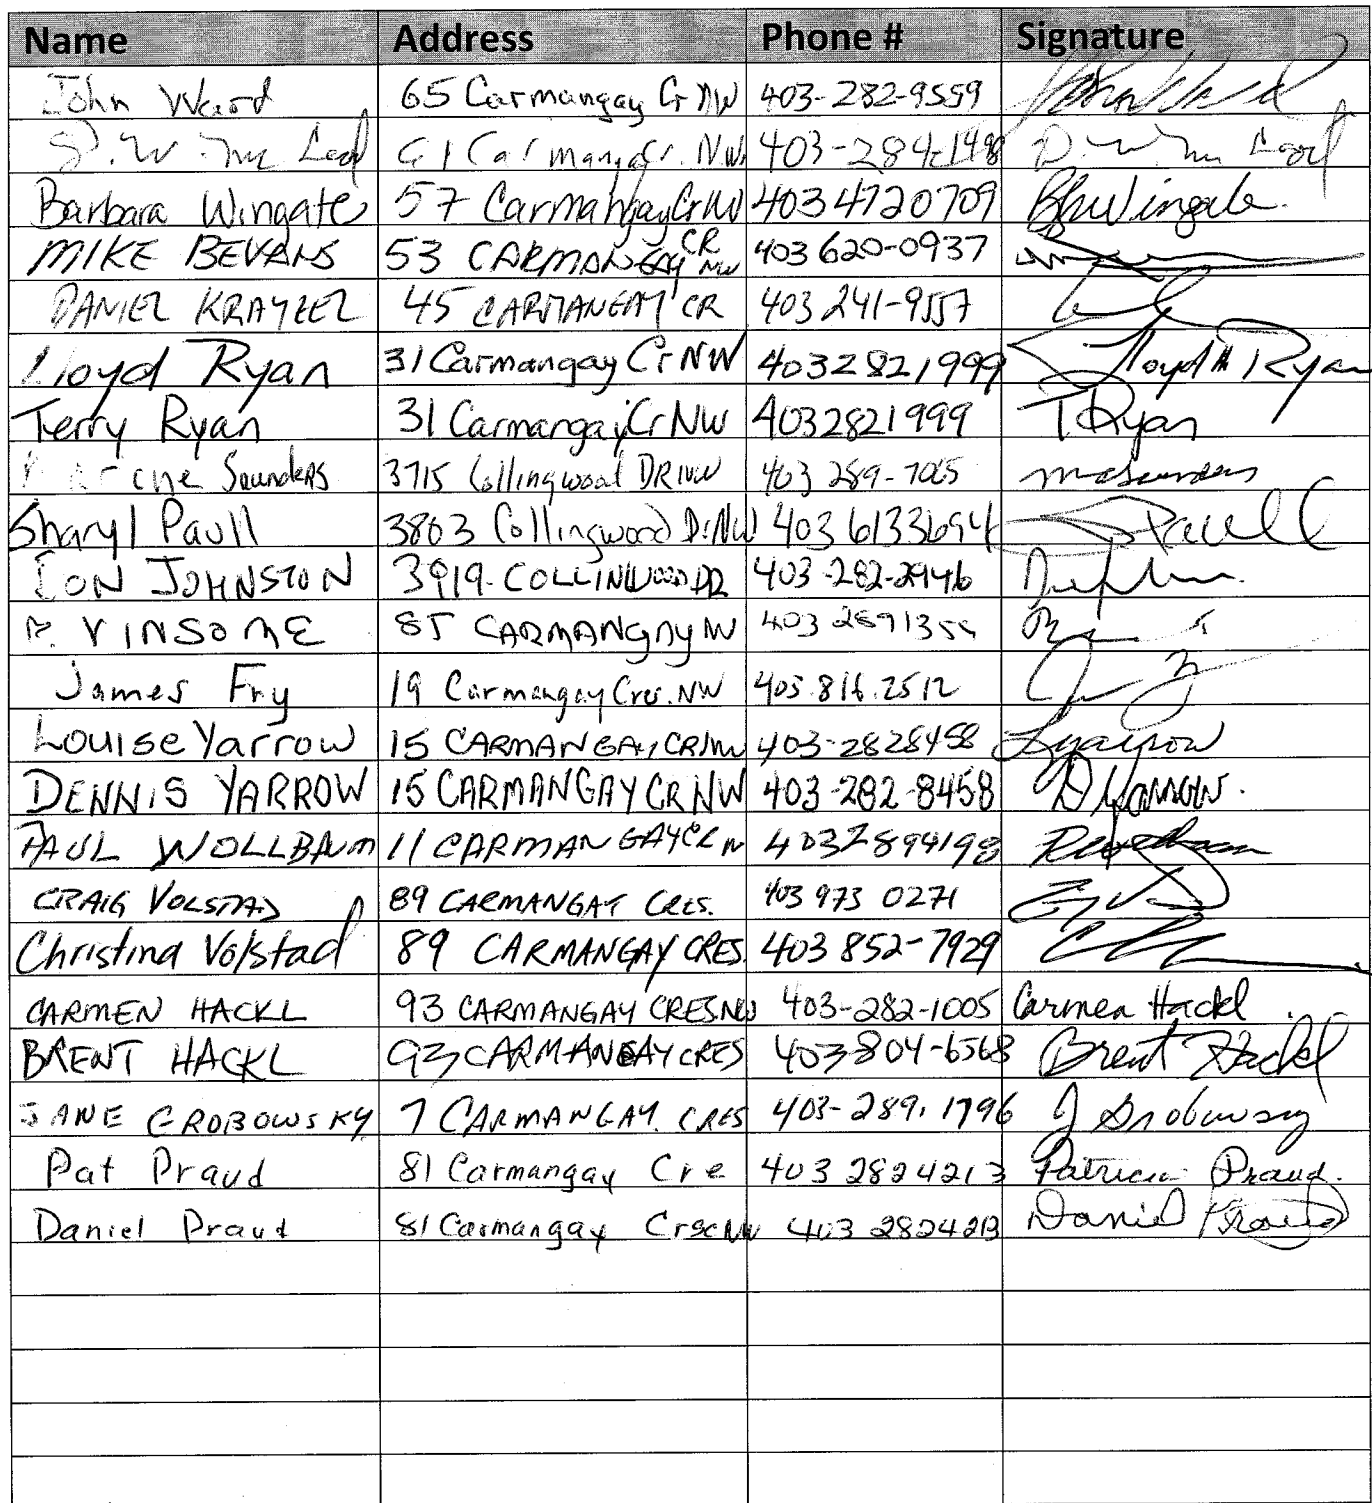 Name Address Phone # Signature
John Ward 65 Carmangay Cr NW 403-282-9559
D. W. McLeod 61 Carmangay Cr. NW. 403-284-1498 D. W. McLeod
Barbara Wingate 57 Carmangay Cr NW 403 4720709 BhWingate.
MIKE BEVANS 53 CARMANGAY CR NW 403 620-0937
DANIEL KRAYZEL 45 CARMANGAY CR 403 241-9557
Lloyd Ryan 31 Carmangay Cr NW 4032821999 Lloyd H Ryan
Terry Ryan 31 Carmangay Cr NW 4032821999 T Ryan
Saunders 3715 Collingwood DR NW 403 289-7065 M Saunders
Sharyl Paull 3803 Collingwood Dr NW 403 6133694 S Paull
JOHNSTON 3919 COLLINWOOD DR 403-282-2946
VINSOME 85 CARMANGAY NW 403 2891355
James Fry 19 Carmangay Cres. NW 403.816.2512
Louise Yarrow 15 CARMANGAY CR NW 403-2828458 LYarrow
DENNIS YARROW 15 CARMANGAY CR NW 403-282-8458 D Yarrow.
PAUL WOLLBAUM 11 CARMANGAY CR N 4032894198
CRAIG VOLSTAD 89 CARMANGAY CRES. 403 973 0271
Christina Volstad 89 CARMANGAY CRES. 403 852-7929
CARMEN HACKL 93 CARMANGAY CRES NW 403-282-1005 Carmen Hackl
BRENT HACKL 93 CARMANGAY CRES 403 804-6568 Brent Hackl
JANE GROBOWSKY 7 CARMANGAY CRES 403-289-1796 J Grobowsky
Pat Praud 81 Carmangay Cre 403 2824213 Patricia Praud.
Daniel Praud 81 Carmangay Cresc NW 403 2824213 Daniel Praud